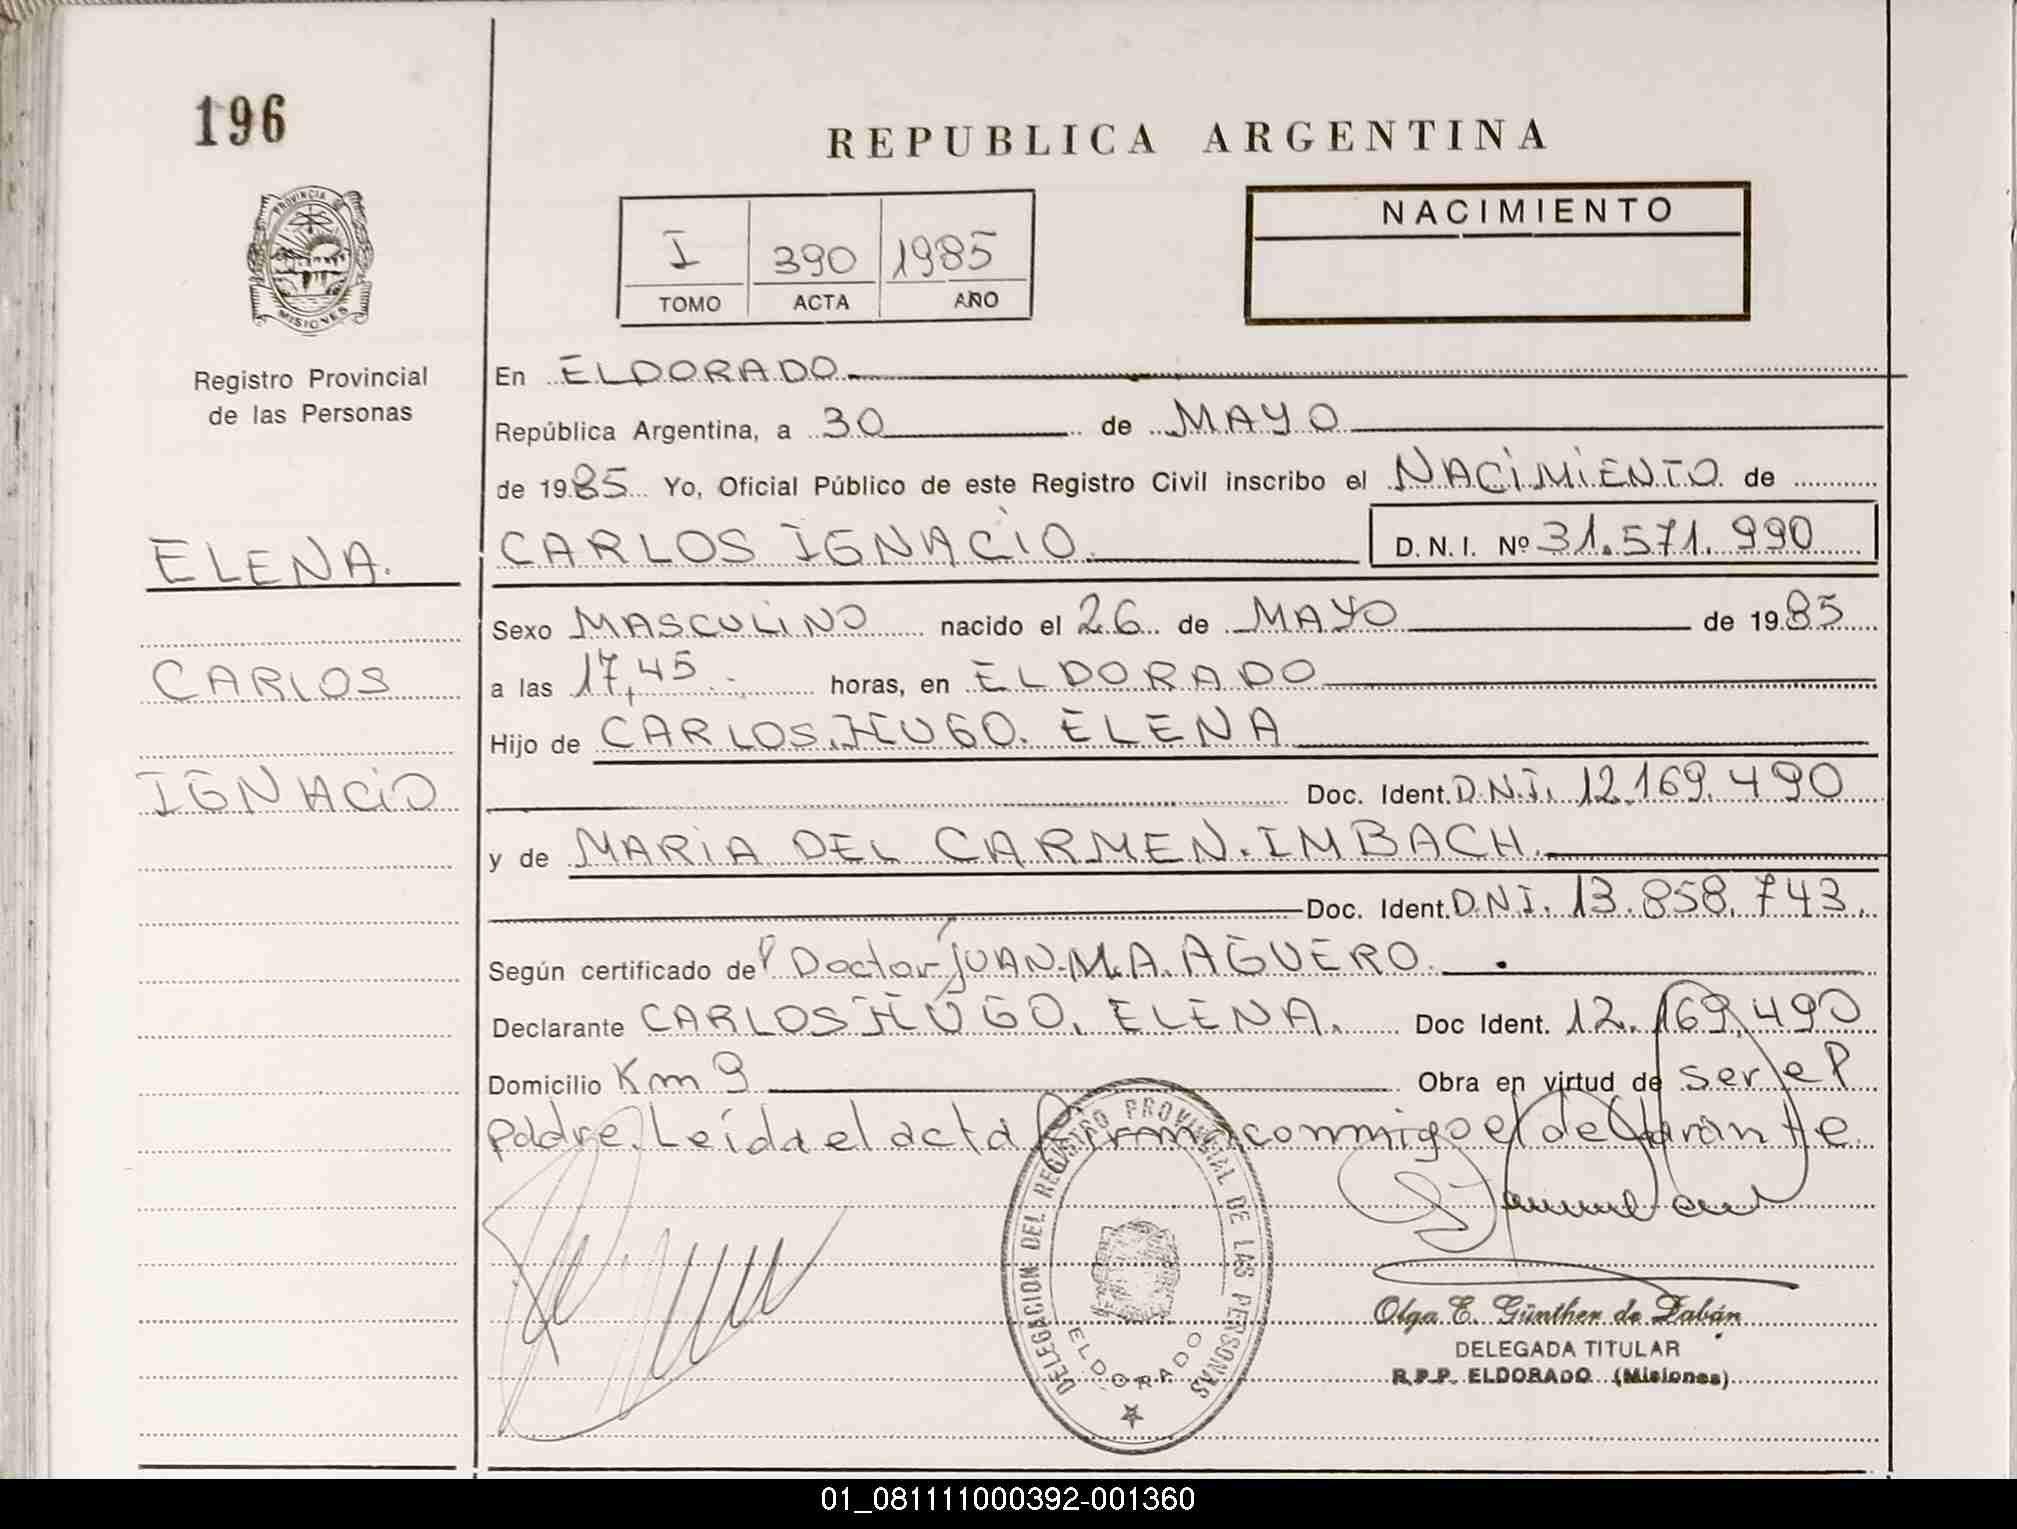 196
REPUBLICA ARGENTINA
PROVINCIA DE
MISIONES
Registro Provincial
de las Personas
I 390 1985
TOMO ACTA AÑO
NACIMIENTO
En ELDORADO
República Argentina, a 30 de MAYO
de 1985 Yo, Oficial Público de este Registro Civil inscribo el NACIMIENTO de
ELENA.
CARLOS IGNACIO D.N.I. Nº 31.571.990
Sexo MASCULINO nacido el 26 de MAYO de 1985
CARLOS
a las 17,45 horas, en ELDORADO
Hijo de CARLOS HUGO ELENA
IGNACIO
Doc. Ident. D.N.I. 12.169.490
y de MARIA DEL CARMEN IMBACH
Doc. Ident. D.N.I. 13.858.743
Según certificado del Doctor JUAN M.A. AGÜERO
Declarante CARLOS HUGO ELENA. Doc Ident. 12.169.490
Domicilio Km 9 Obra en virtud de ser el
padre. Leída el acta firma conmigo el declarante
DELEGACION DEL REGISTRO PROVINCIAL DE LAS PERSONAS
ELDORADO
Olga E. Günther de Dabán
DELEGADA TITULAR
R.P.P. ELDORADO (Misiones)
01_081111000392-001360